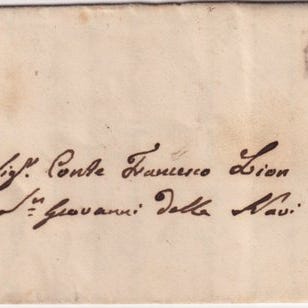 Sigr. Conte Francesco Lion
Sn Giovanni delle Navi